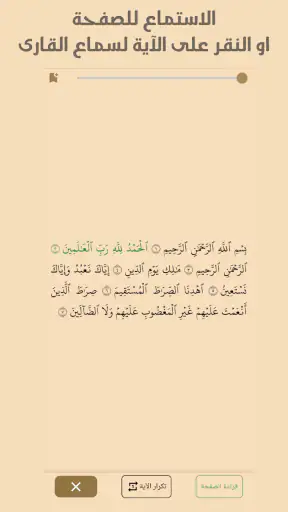 الاستماع للصفحة
او النقر على الآية لسماع القارئ
بِسْمِ ٱللَّهِ ٱلرَّحْمَٰنِ ٱلرَّحِيمِ ١ ٱلْحَمْدُ لِلَّهِ رَبِّ ٱلْعَٰلَمِينَ ٢
ٱلرَّحْمَٰنِ ٱلرَّحِيمِ ٣ مَٰلِكِ يَوْمِ ٱلدِّينِ ٤ إِيَّاكَ نَعْبُدُ وَإِيَّاكَ
نَسْتَعِينُ ٥ ٱهْدِنَا ٱلصِّرَٰطَ ٱلْمُسْتَقِيمَ ٦ صِرَٰطَ ٱلَّذِينَ
أَنْعَمْتَ عَلَيْهِمْ غَيْرِ ٱلْمَغْضُوبِ عَلَيْهِمْ وَلَا ٱلضَّآلِّينَ ٧
قراءة الصفحة
تكرار الآية 1